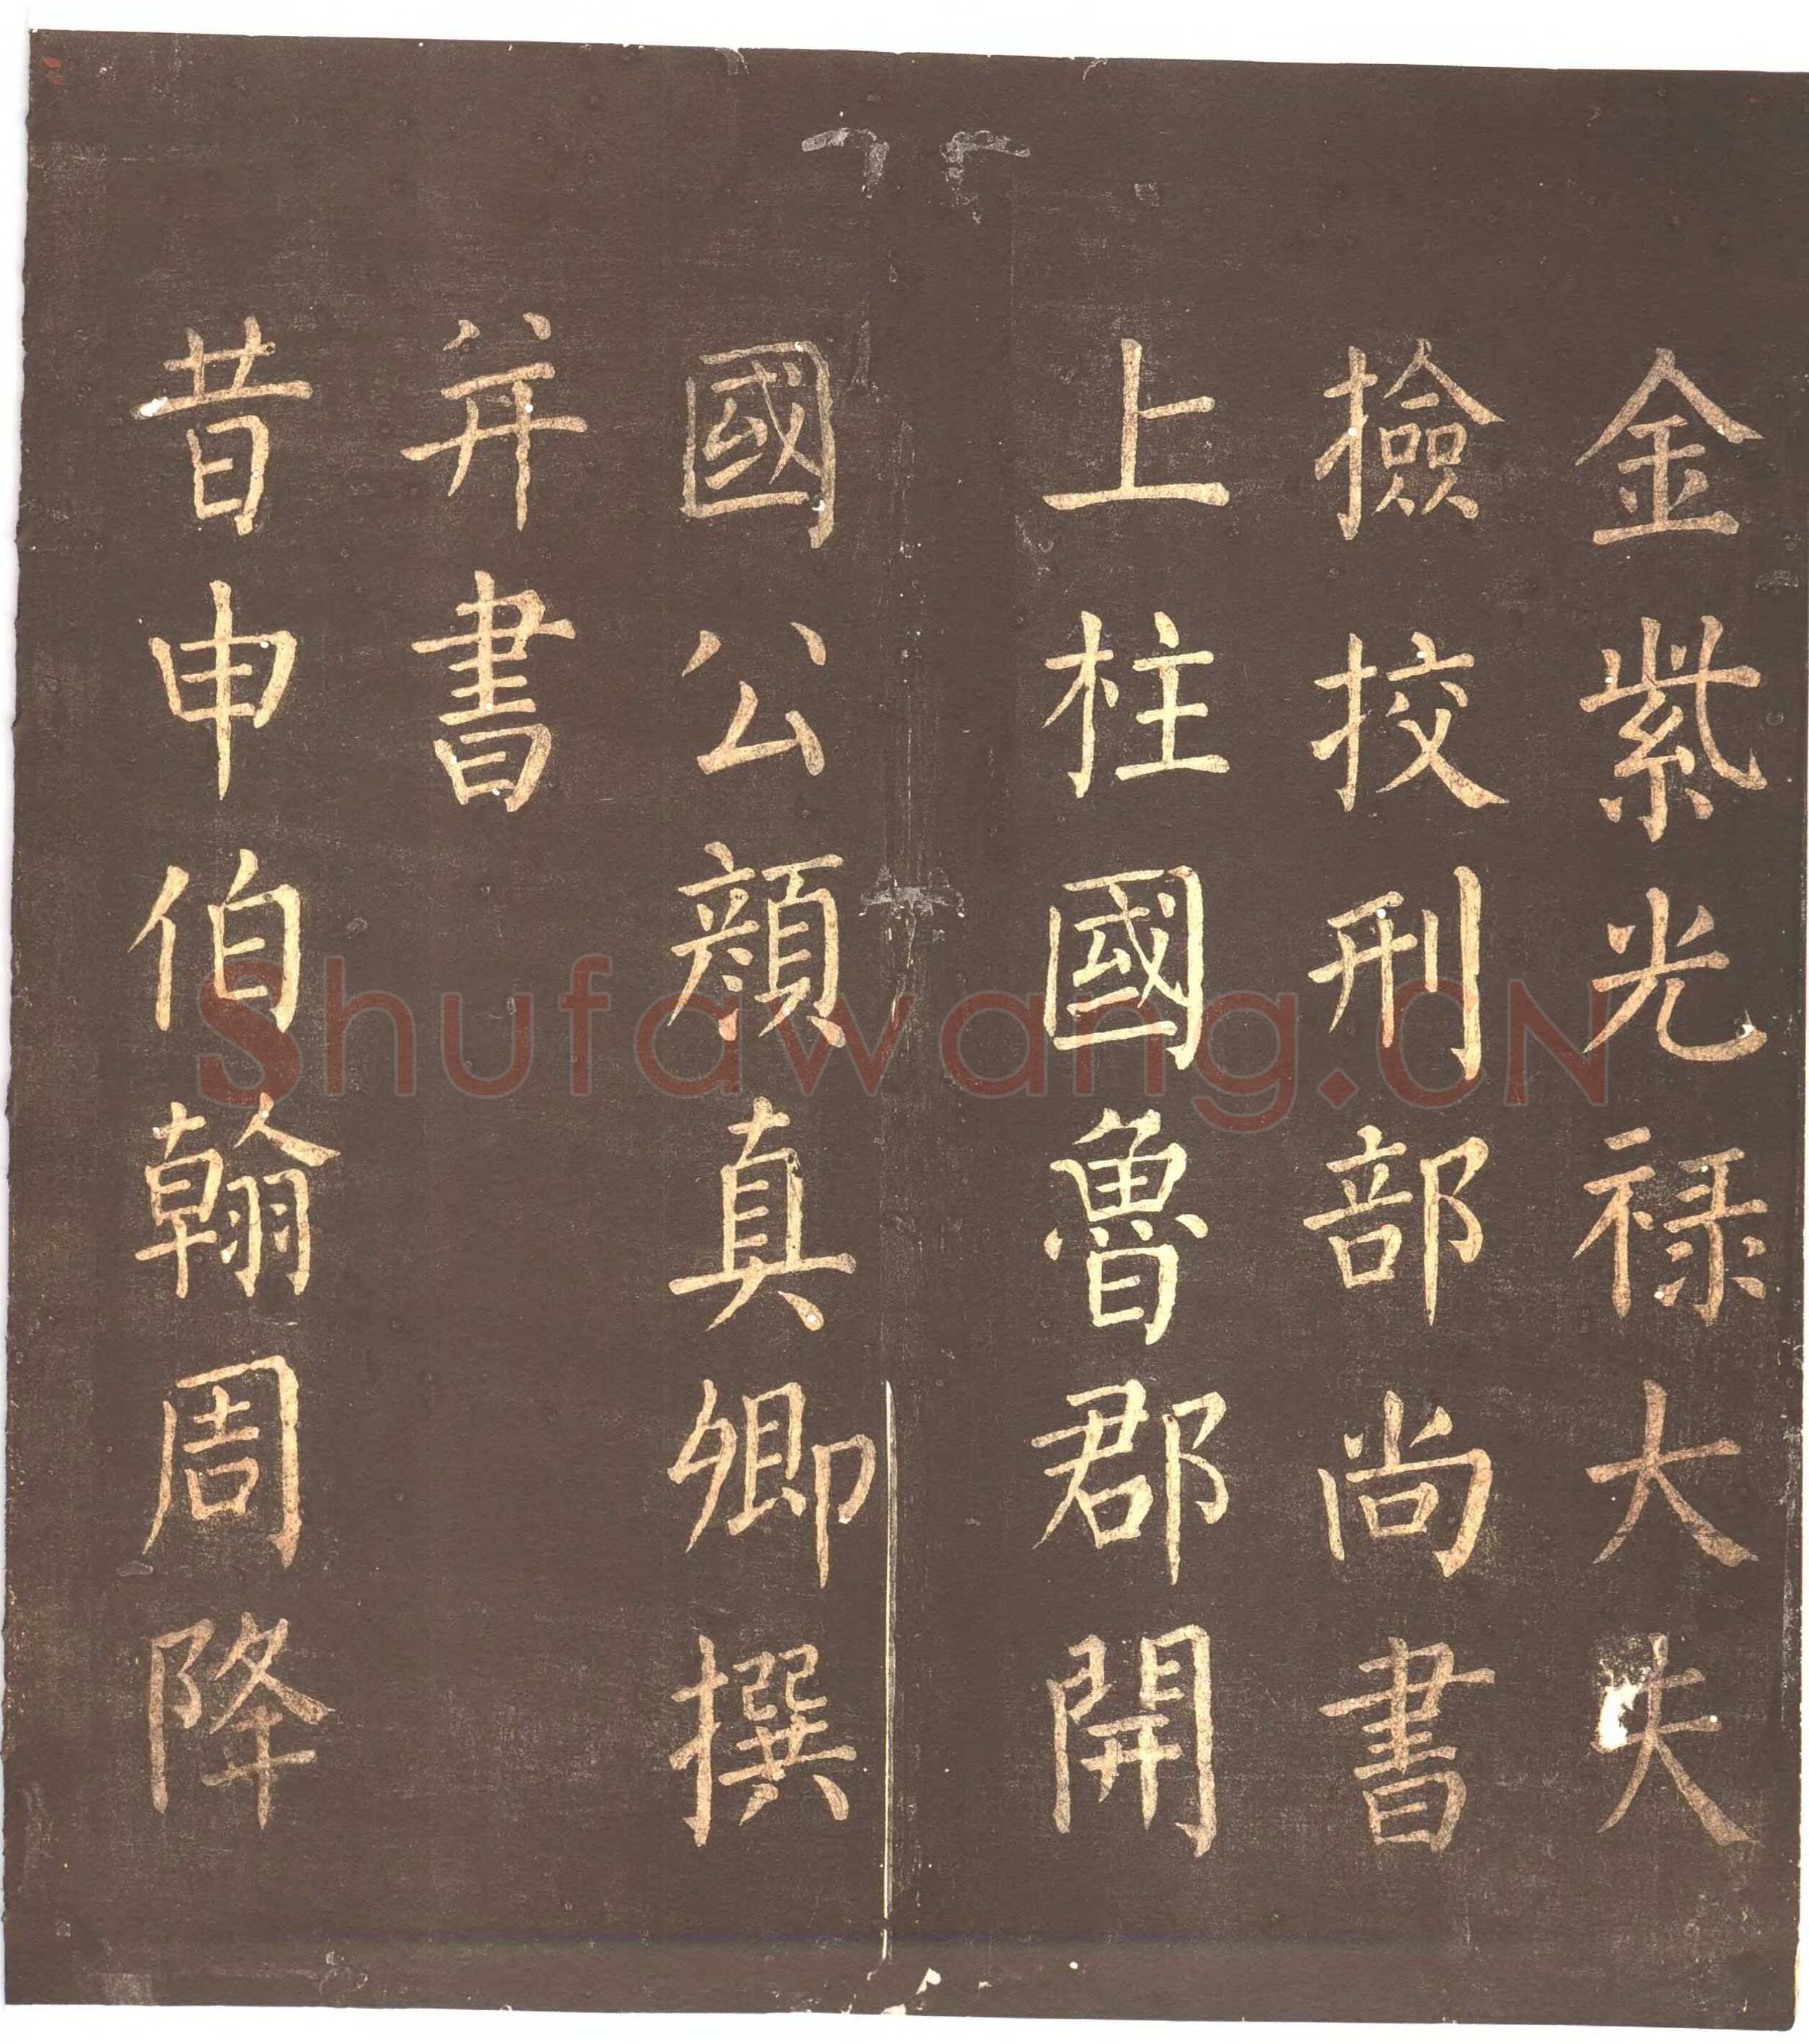 金紫光禄大夫
撿挍刑部尚書
上柱國魯郡開
國公顏真卿撰
并書
昔申伯翰周降
Shufawang.CN